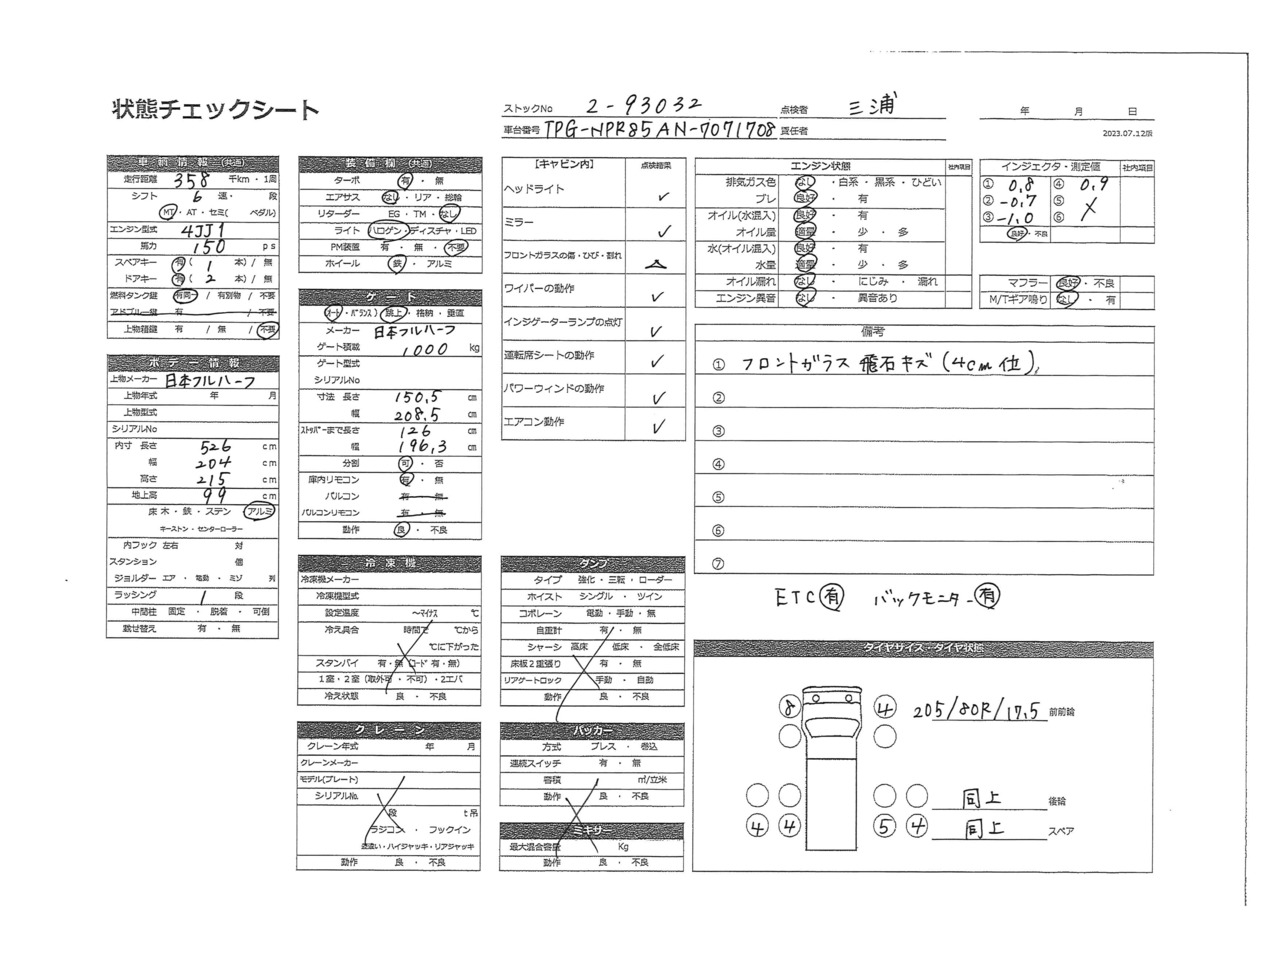 状態チェックシート
ストックNo 2-93032 点検者 三浦 年 月 日
車台番号 TPG-NPR85AN-7071708 責任者 2023.07.12版
車輌情報(共通)
走行距離 358 千km・1周
シフト 6 速・ 段
MT・AT・セミ( ペダル)
エンジン型式 4JJ1
馬力 150 ps
スペアキー 有( 1 本)/無
ドアキー 有( 2 本)/無
燃料タンク鍵 有同一/有別物/不要
アドブルー鍵 有 / /不要
上物箱鍵 有 /無 /不要
ボデー情報
上物メーカー 日本フルハーフ
上物年式 年 月
上物型式
シリアルNo
内寸 長さ 526 cm
幅 204 cm
高さ 215 cm
地上高 99 cm
床 木・鉄・ステン アルミ
キーストン・センターローラー
内フック 左右 対
スタンション 個
ジョルダー エア・電動・ミゾ 列
ラッシング 1 段
中間柱 固定・脱着・可倒
載せ替え 有・無
装備欄(共通)
ターボ 有・無
エアサス なし・リア・総輪
リターダー EG・TM・なし
ライト ハロゲン・ディスチャ・LED
PM装置 有・無・不要
ホイール 鉄・アルミ
ゲート
(オート・バランス) 跳上・格納・垂直
メーカー 日本フルハーフ
ゲート積載 1000 kg
ゲート型式
シリアルNo
寸法 長さ 150.5 cm
幅 208.5 cm
ストッパーまで長さ 126 cm
幅 196.3 cm
分割 可・否
庫内リモコン 有・無
バルコン 有 無
バルコンリモコン 有・無
動作 良・不良
冷凍機
冷凍機メーカー
冷凍機型式
設定温度 ～マイナス ℃
冷え具合 時間で ℃から
℃に下がった
スタンバイ 有・無(コード 有・無)
1室・2室(取外可・不可)・2エバ
冷え状態 良・不良
クレーン
クレーン年式 年 月
クレーンメーカー
モデル(プレート)
シリアルNo.
段 t吊
ラジコン・フックイン
・ハイジャッキ・リアジャッキ
動作 良・不良
【キャビン内】 点検結果
ヘッドライト ✓
ミラー ✓
フロントガラスの傷・ひび・割れ △
ワイパーの動作 ✓
インジゲーターランプの点灯 ✓
運転席シートの動作 ✓
パワーウィンドの動作 ✓
エアコン動作 ✓
ダンプ
タイプ 強化・三転・ローダー
ホイスト シングル・ツイン
コボレーン 電動・手動・無
自重計 有・無
シャーシ 高床・低床・全低床
床板2重張り 有・無
リアゲートロック 手動・自動
動作 良・不良
パッカー
方式 プレス・巻込
連続スイッチ 有・無
容積 ㎥/立米
動作 良・不良
ミキサー
最大混合容量 Kg
動作 良・不良
エンジン状態 社内項目
排気ガス色 なし・白系・黒系・ひどい
ブレ 良好・有
オイル(水混入) 良好・有
オイル量 適量・少・多
水(オイル混入) 良好・有
水量 適量・少・多
オイル漏れ なし・にじみ・漏れ
エンジン異音 なし・異音あり
インジェクタ・測定値 社内項目
① 0.8 ④ 0.9
② -0.7 ⑤
③ -1.0 ⑥
良好・不良
マフラー 良好・不良
M/Tギア鳴り なし・有
備考
① フロントガラス 飛石キズ(4cm位)。
②
③
④
⑤
⑥
⑦
ETC 有 バックモニター 有
タイヤサイズ・タイヤ状態
8 4 205/80R/17.5 前前輪
同上 後輪
4 4 5 4 同上 スペア